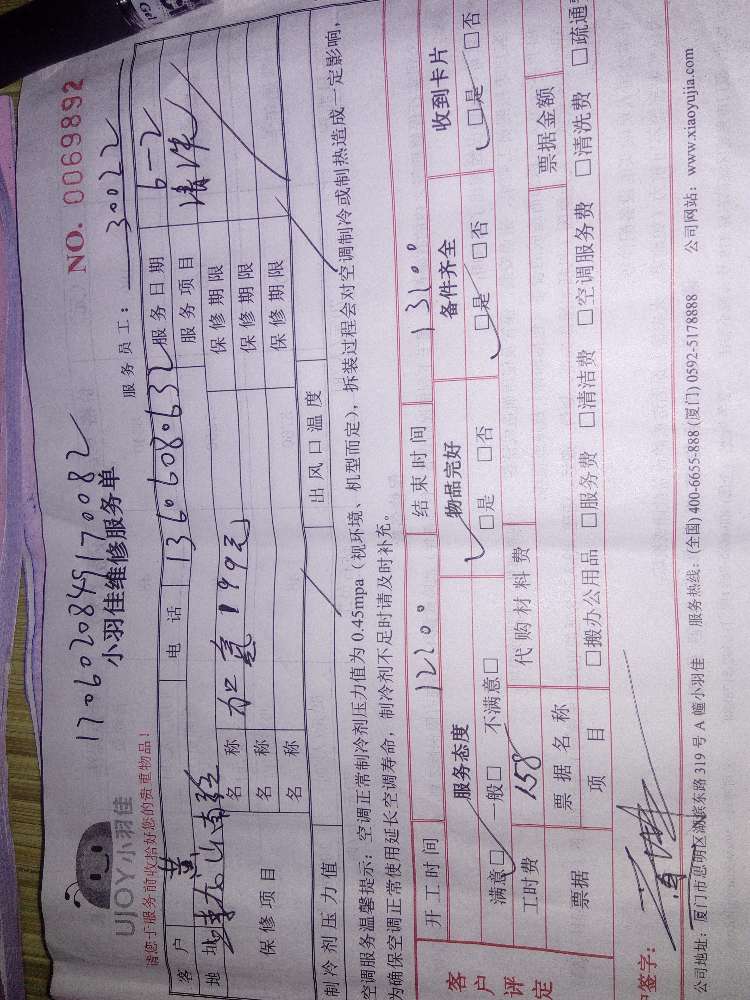 Gel
NO. 0069892
1706020845170082
UJOY小羽佳
小羽佳维修服务单
服务员工： 30022
请您于服务前收拾好您的贵重物品！
客户 黄 电话 13606080632 服务日期 6-2
地址 服务项目 清洗
保修项目 名称 加氟199元 保修期限
名称 保修期限
名称 保修期限
制冷剂压力值 出风口温度
空调服务温馨提示：空调正常制冷剂压力值为 0.45mpa（视环境、机型而定），拆装过程会对空调制冷或制热造成一定影响，
为确保空调正常使用延长空调寿命，制冷剂不足时请及时补充。
开工时间 12:00 结束时间 13:00
客户评定 服务态度 物品完好 备件齐全 收到卡片
满意□ 一般□ 不满意□ □是 □否 □是 □否 □是 □否
工时费 158 代购材料费 票据金额
票据 票据名称
项目 □搬办公用品 □服务费 □清洁费 □空调服务费 □清洗费 □疏通
签字：
公司地址：厦门市思明区湖滨东路 319 号 A 幢小羽佳 服务热线：(全国) 400-6655-888 (厦门) 0592-5178888 公司网站：www.xiaoyujia.com